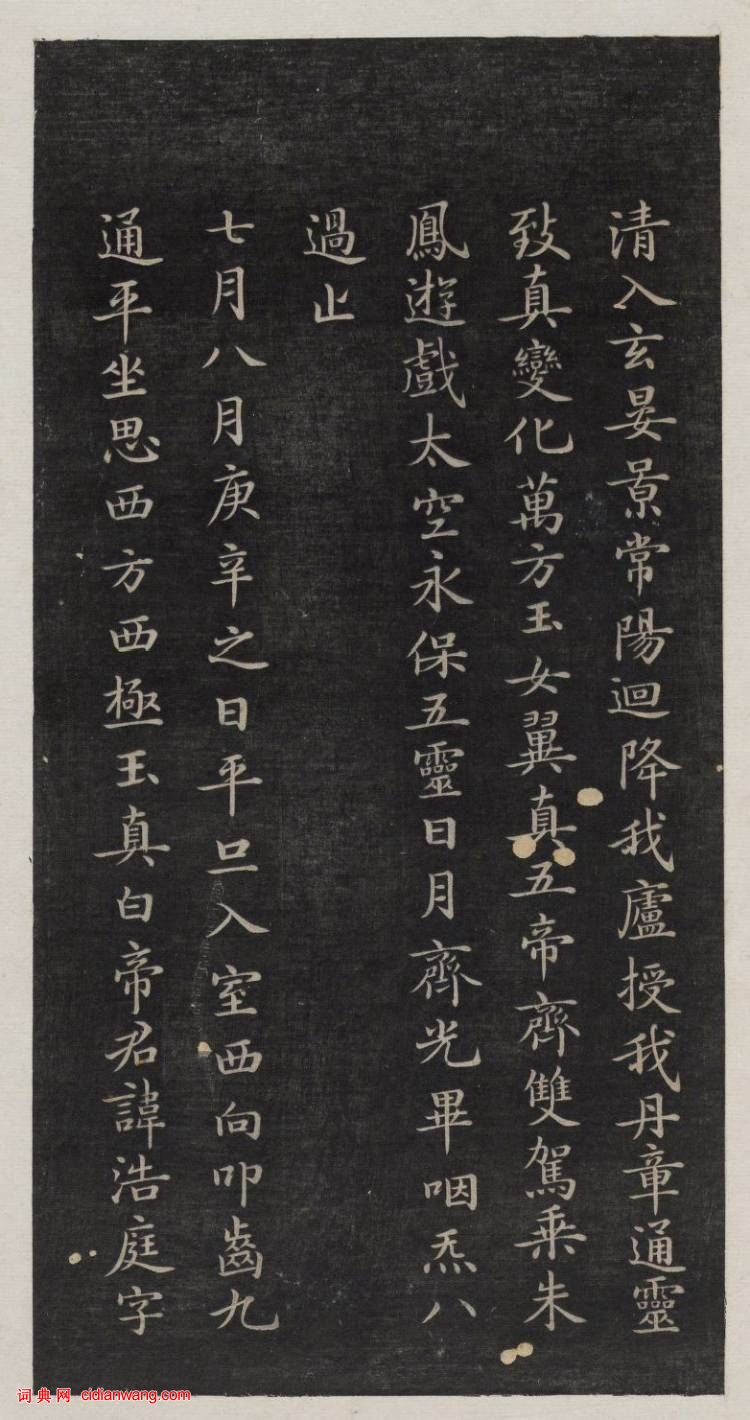 清入玄晏景常陽迴降我廬授我丹章通靈
致真變化萬方玉女翼真五帝齊雙駕乗朱
鳳遊戲太空永保五靈日月齊光畢咽炁八
過止
七月八月庚辛之日平旦入室西向叩齒九
通平坐思西方西極玉真白帝君諱浩庭字
词典网 cidianwang.com